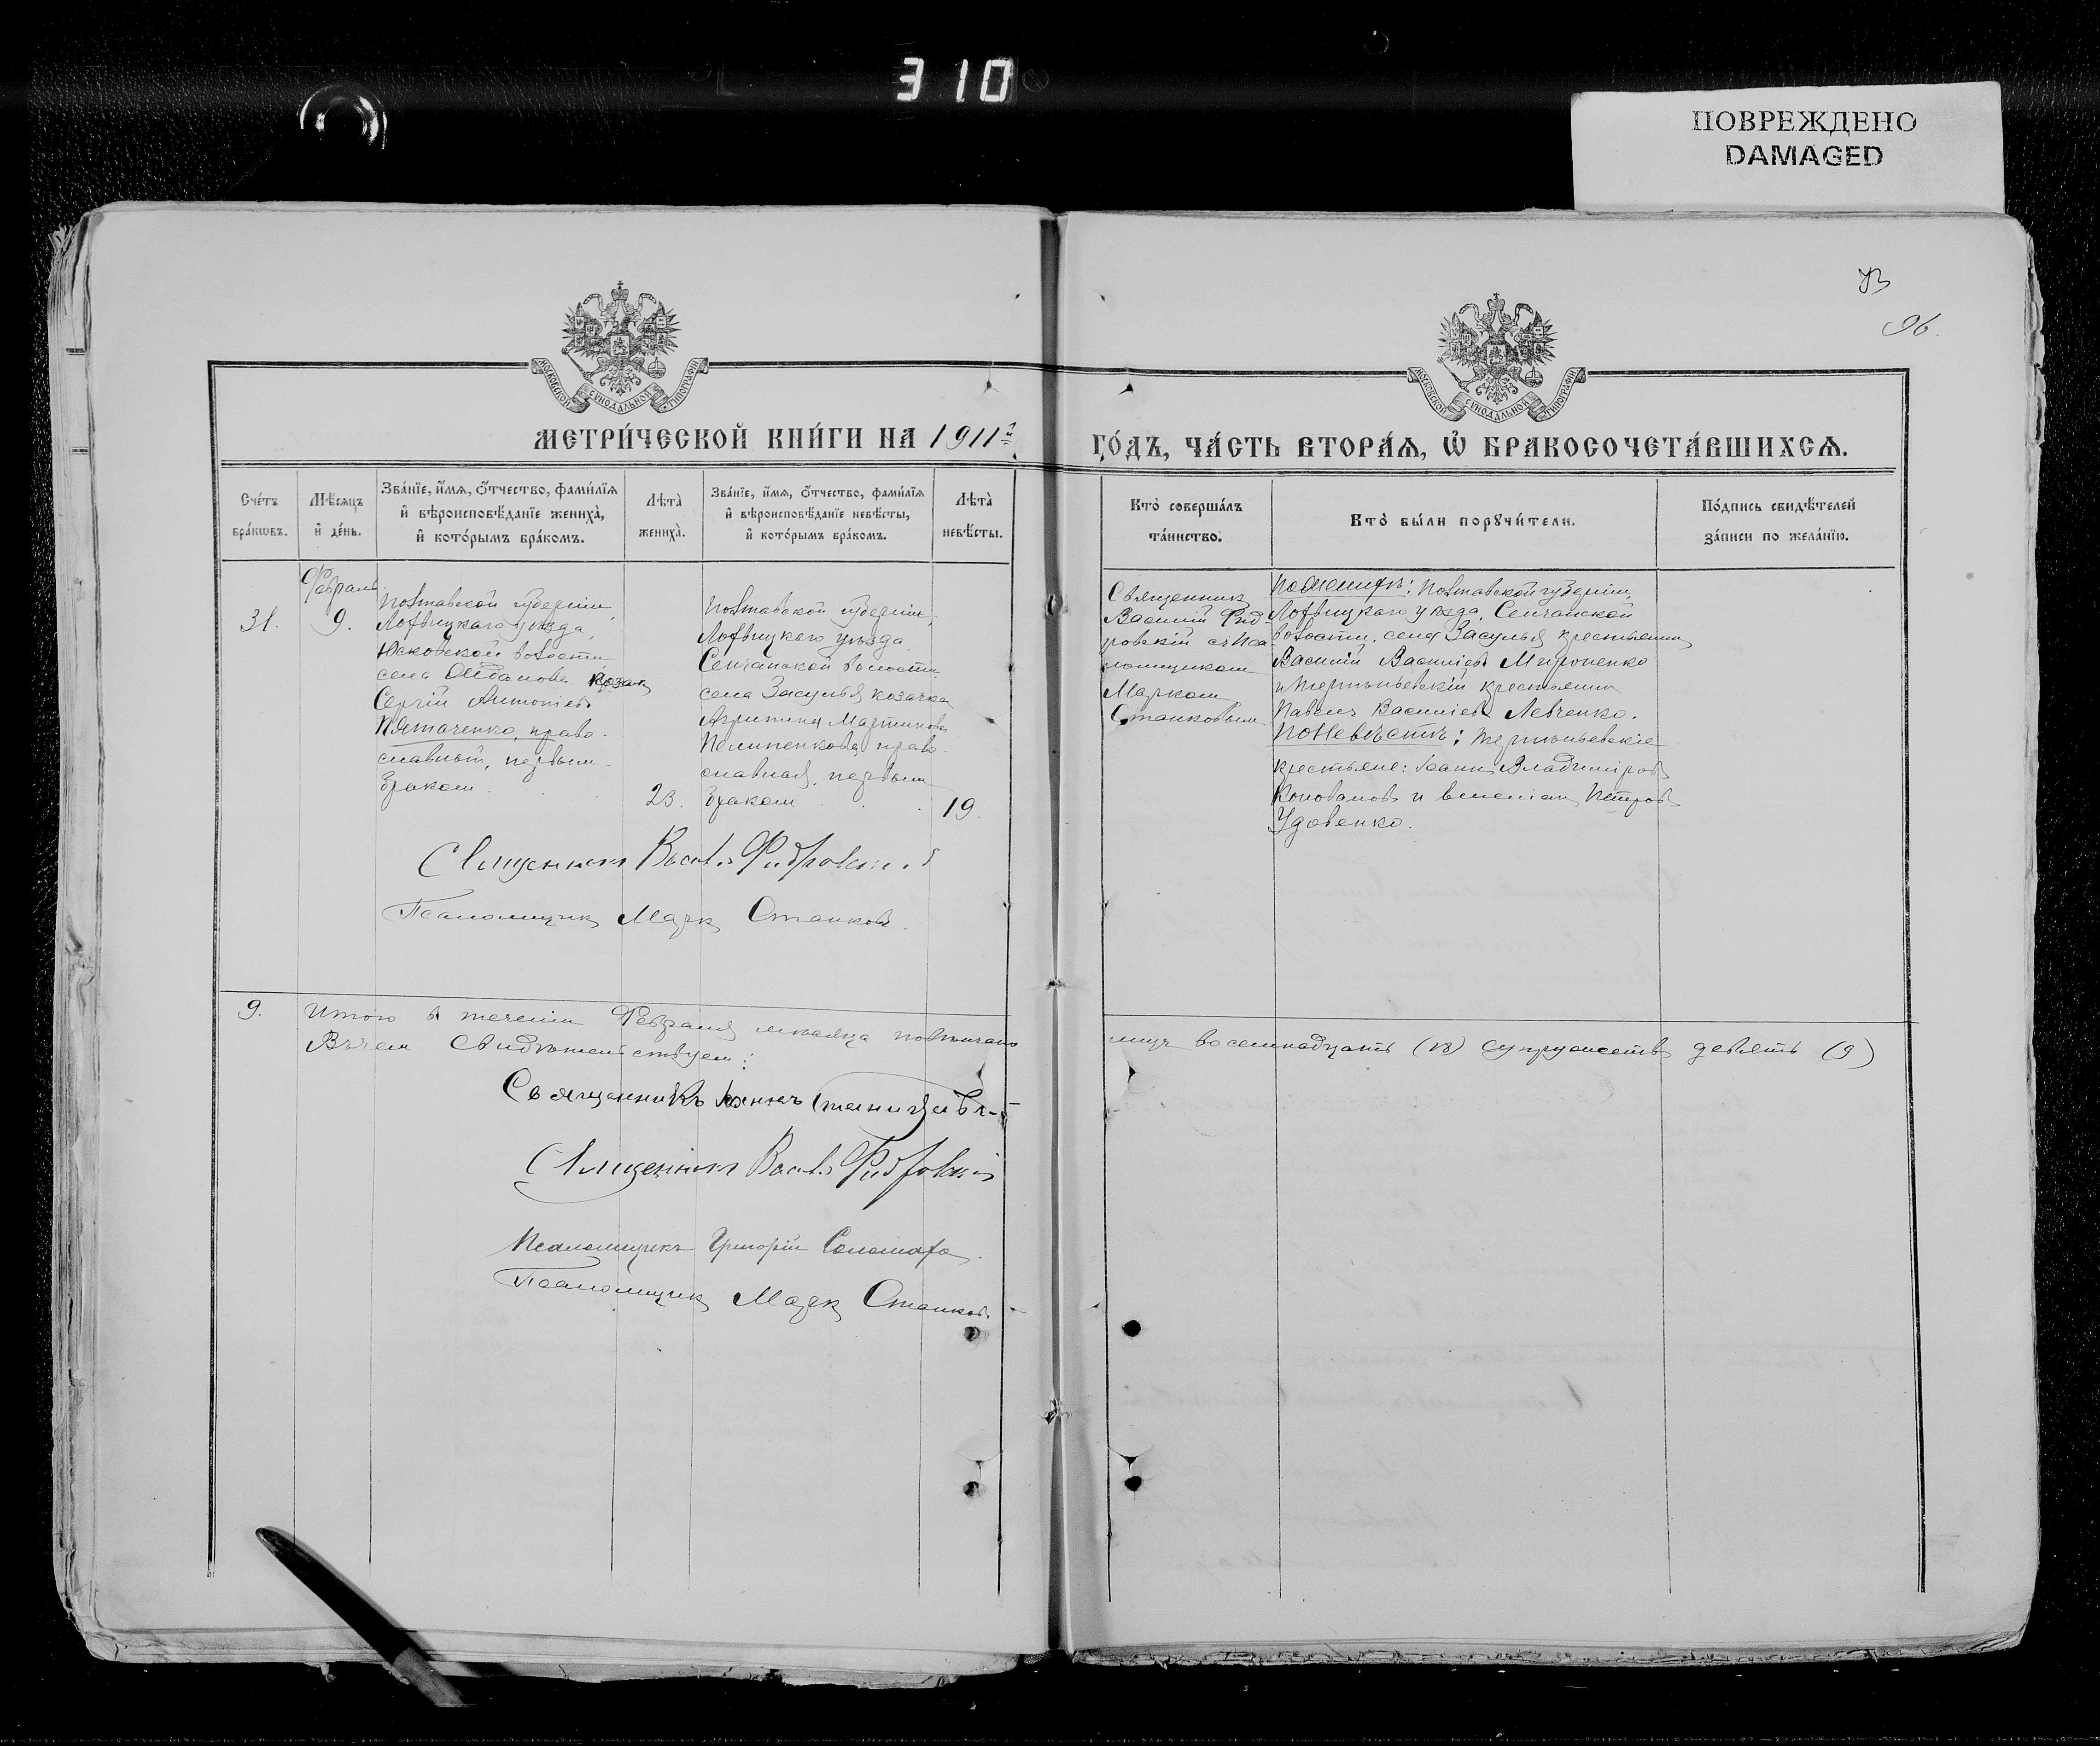 310
ПОВРЕЖДЕНО
DAMAGED
96.
МОСКОВСКОЙ СѴНОДАЛЬНОЙ ТИПОГРАФІИ
МОСКОВСКОЙ СѴНОДАЛЬНОЙ ТИПОГРАФІИ
МЕТРИ́ЧЕСКОЙ КНИ́ГИ НА 1911 г.
ГО́ДЪ, ЧА́СТЬ ВТОРА́Я, Ѽ БРАКОСОЧЕТА́ВШИХСЯ.
Сче́тъ бра́кωвъ.
Мѣ́сяцъ и҆ де́нь.
Зва́нїе, и҆́мя, ѻ҆́тчество, фами́лїя
и҆ вѣроисповѣ́данїе жениха̀,
и҆ кото́рымъ бра́комъ.
Лѣта̀ жениха̀.
Зва́нїе, и҆́мя, ѻ҆́тчество, фами́лїя
и҆ вѣроисповѣ́данїе невѣ́сты,
и҆ кото́рымъ бра́комъ.
Лѣта̀ невѣ́сты.
Кто̀ соверша́лъ
та́инство.
Кто̀ бы́ли порꙋчи́тели.
По́дпись свидѣ́телей
за́писи по жела́нїю.
31.
Февраль
9.
Полтавской губерніи
Лохвицкаго уѣзда,
Юсковской волости
села Козак
Сергій Антоніевъ
Пятаченко, право-
славный, первым
браком.
23.
Полтавской губерніи,
Лохвицкаго уѣзда
Сенчанской волости
села Засулья козачка
Агрипина Мартинова
Пелипенкова, право-
славная, первым
браком
19.
Священник
Василій Фид-
ровскій съ Пса-
ломщиком
Марком
Станковым
По женихѣ: Полтавской губерніи,
Лохвицкаго уѣзда, Сенчанской
волости, села Засулья крестьянин
Василій Васильевъ Мироненко
и крестьянин
Павелъ Васильевъ Левченко.
По Невѣстѣ:
крестьяне: Іоанн Владиміровъ
Коновалов и Петровъ
Удовенко.
Священник Васил. Фидровскій
Псаломщик Марк Станков.
9.
Итого в теченіи Февраля мѣсяца повѣнчано
лицъ восемнадцать (18) супружествъ девять (9)
Въ чем свидѣтельствуем:
Священникъ
Священник Васил. Фидровскій
Псаломщикъ Григорій Соломаха.
Псаломщик Марк Станков.